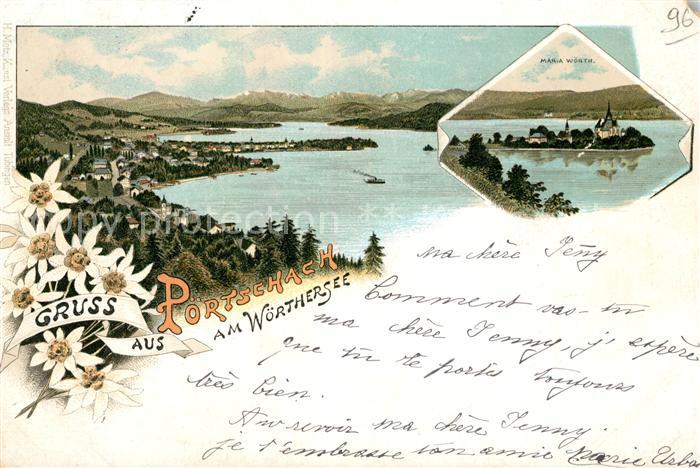 96
H. Metz, Kunst Verlags Anstalt Tübingen
MARIA WÖRTH.
GRUSS
AUS
PÖRTSCHACH
AM WÖRTHERSEE
copy protection
ma chère Jény
Comment vas-tu
ma chère Jenny, j'espère
que tu te portes toujours
très bien.
Au revoir ma chère Jenny.
je t'embrasse ton amie Marie